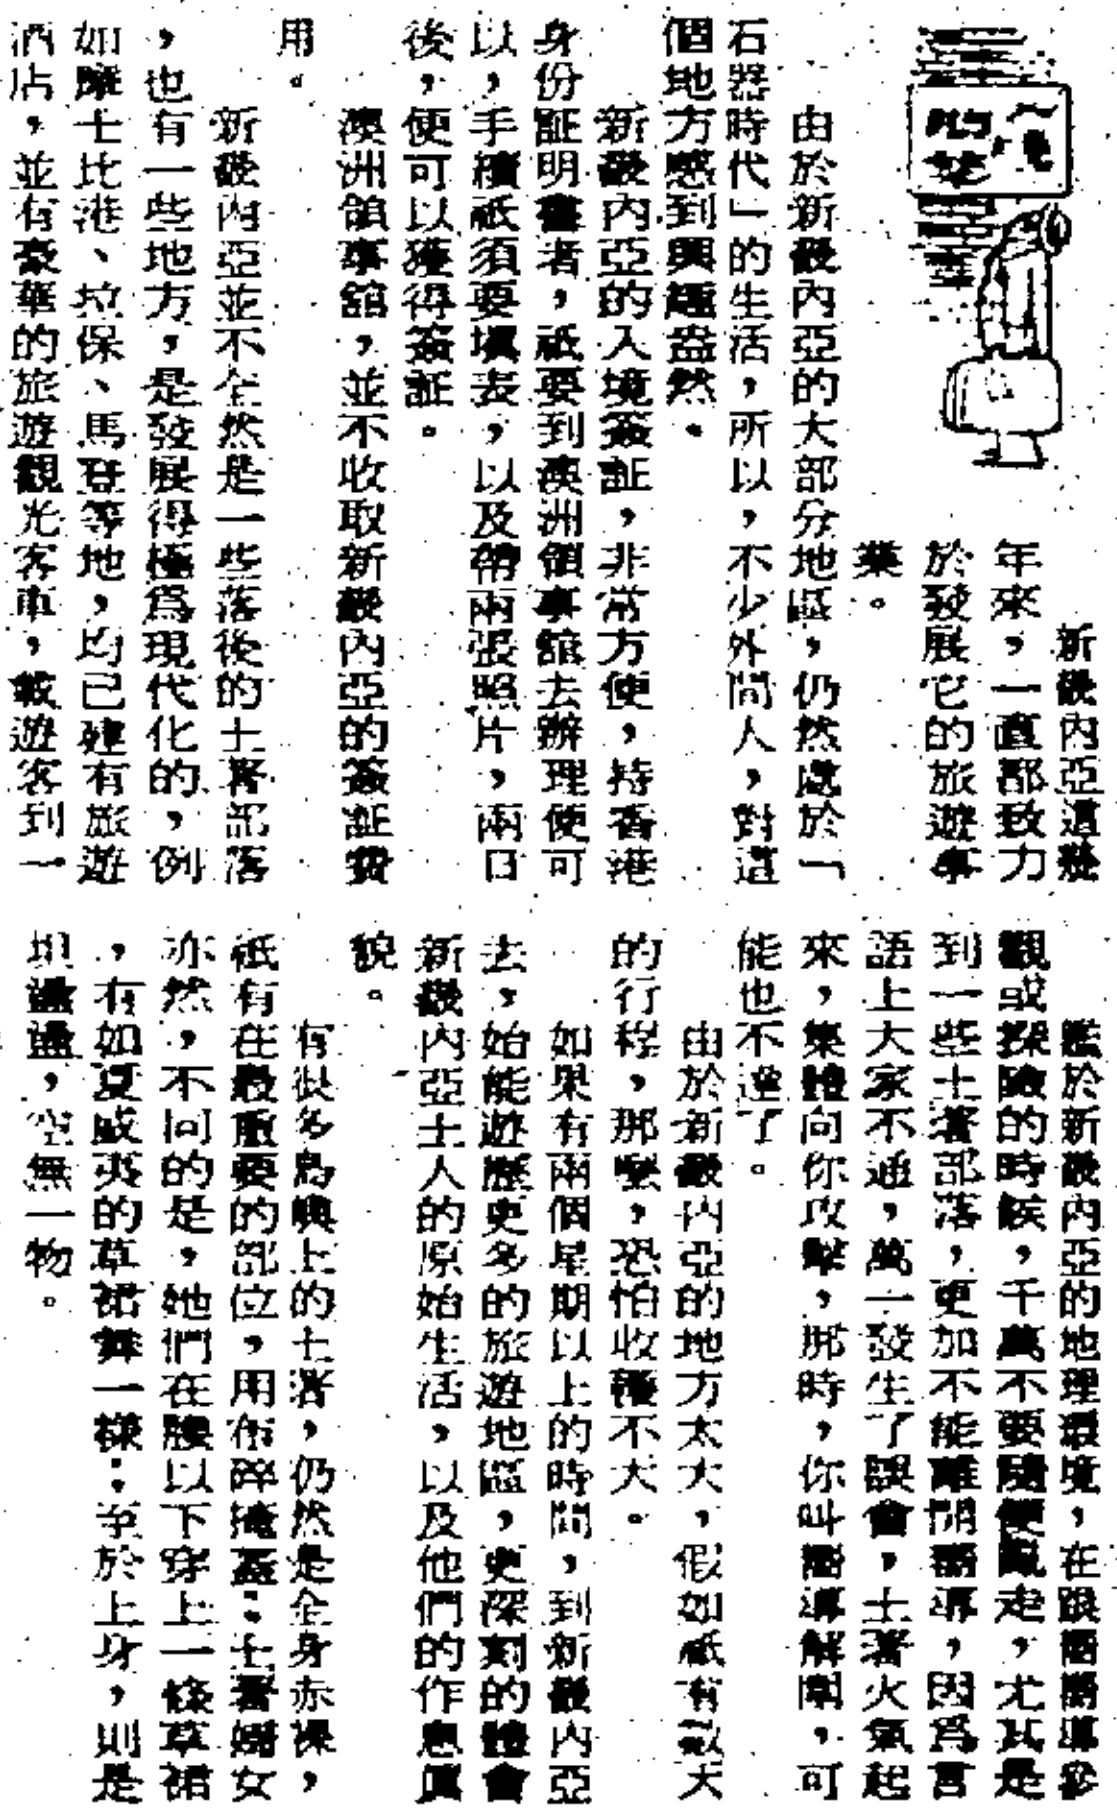 新畿內亞這幾
年來，一直都致力
於發展它的旅遊事
業。
由於新畿內亞的大部分地區，仍然處於「
石器時代」的生活，所以，不少外間人，對這
個地方感到興趣盎然。
新畿內亞的入境簽証，非常方便，持香港
身份証明書者，祇要到澳洲領事舘去辦理便可
以，手續祇須要塡表，以及帶兩張照片，兩日
後，便可以獲得簽証。
澳洲領事舘，並不收取新畿內亞的簽証費
用。
新畿內亞並不全然是一些落後的土著部落
，也有一些地方，是發展得極爲現代化的，例
如摩士比港、拉保、馬登等地，均已建有旅遊
酒店，並有豪華的旅遊觀光客車，載遊客到一
鑑於新畿內亞的地理環境，在跟團嚮導參
觀或探險的時候，千萬不要隨便亂走，尤其是
到一些土著部落，更加不能離開嚮導，因爲言
語上大家不通，萬一發生了誤會，土著火氣起
來，集體向你攻擊，那時，你叫嚮導解圍，可
能也不逹了。
由於新畿內亞的地方太大，假如祇有數天
的行程，那麼，恐怕收穫不大。
如果有兩個星期以上的時間，到新畿內亞
去，始能遊歷更多的旅遊地區，更深刻的體會
新畿內亞土人的原始生活，以及他們的作息眞
貌。
有很多島嶼上的土著，仍然是全身赤裸，
祇有在最重要的部位，用布碎掩蓋；土著婦女
亦然，不同的是，她們在腰以下穿上一條草裙
，有如夏威夷的草裙舞一樣；至於上身，則是
坦盪盪，空無一物。